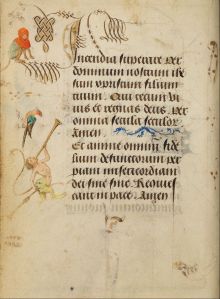 Incendia superare per
dominum nostrum ihe
sum xpristum filium
tuum. Qui tecum vi
vis et regnas deus. per
omnia secula seculor
Amen.
Et anime omnium fide
lium defunctorum per
piam misericordiam
dei sine fine. Requies
cant in pace. Amen